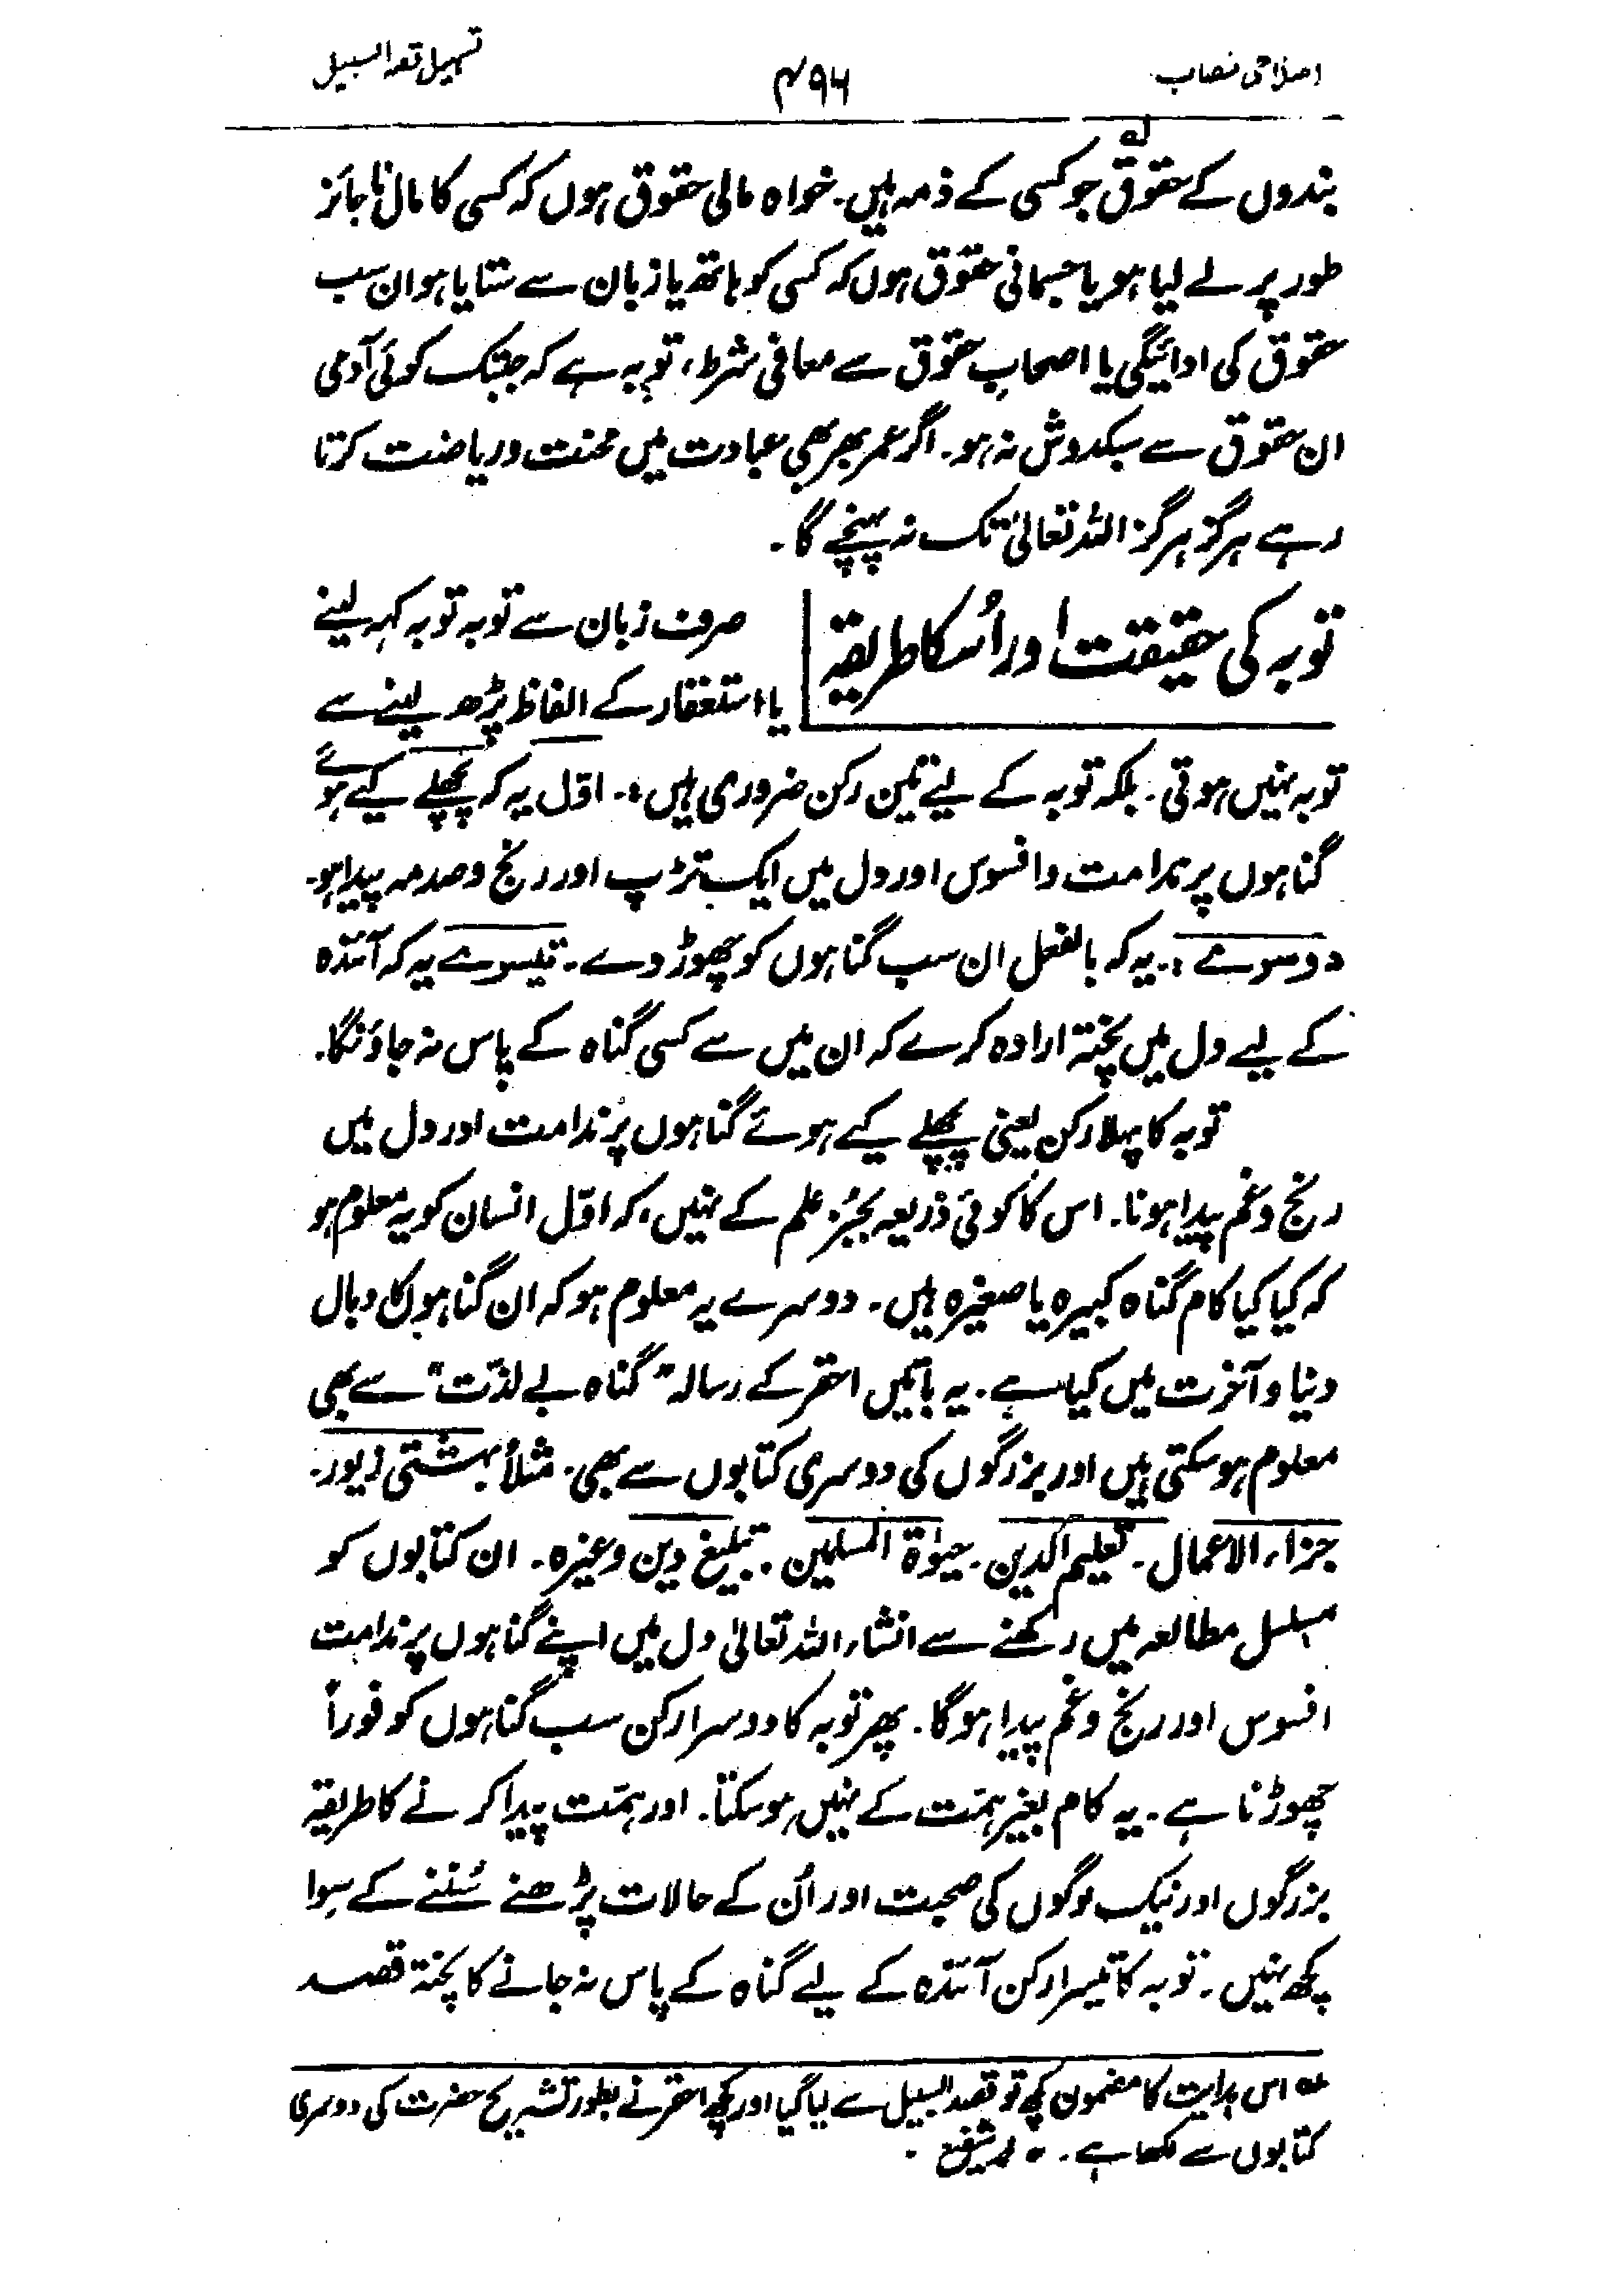 اصلاحی نصاب
۴۹۶
تسہیل قصد السبیل
بندوں کے حقوق لہ جو کسی کے ذمہ ہیں۔ خواہ مالی حقوق ہوں کہ کسی کا مال ناجائز
طور پر لے لیا ہو یا جسمانی حقوق ہوں کہ کسی کو ہاتھ یا زبان سے ستایا ہو ان سب
حقوق کی ادائیگی یا اصحابِ حقوق سے معافی شرط، توبہ ہے کہ جبتک کوئی آدمی
ان حقوق سے سبکدوش نہ ہو۔ اگر عمر بھر بھی عبادت میں محنت و ریاضت کرتا
رہے ہرگز ہرگز اللہ تعالیٰ تک نہ پہنچے گا۔
توبہ کی حقیقت اور اُسکا طریقہ
صرف زبان سے توبہ توبہ کہہ لینے
یا استغفار کے الفاظ پڑھ لینے سے
توبہ نہیں ہوتی۔ بلکہ توبہ کے لیے تین رکن ضروری ہیں:۔ اوّل یہ کہ پچھلے کیے ہوئے
گناہوں پر ندامت و افسوس اور دل میں ایک تڑپ اور رنج و صدمہ پیدا ہو۔
دوسرے:۔ یہ کہ بالفعل ان سب گناہوں کو چھوڑ دے۔ تیسرے یہ کہ آئندہ
کے لیے دل میں پختہ ارادہ کرے کہ ان میں سے کسی گناہ کے پاس نہ جاؤنگا۔
توبہ کا پہلا رکن یعنی پچھلے کیے ہوئے گناہوں پر ندامت اور دل میں
رنج و غم پیدا ہونا۔ اس کا کوئی ذریعہ بجُز علم کے نہیں، کہ اوّل انسان کو یہ معلوم ہو
کہ کیا کیا کام گناہ کبیرہ یا صغیرہ ہیں۔ دوسرے یہ معلوم ہو کہ ان گناہوں کا وبال
دنیا و آخرت میں کیا ہے۔ یہ باتیں احقر کے رسالہ "گناہ بے لذّت" سے بھی
معلوم ہوسکتی ہیں اور بزرگوں کی دوسری کتابوں سے بھی۔ مثلاً بہشتی زیور۔
جزاء الاعمال۔ تعلیم الدین۔ حیوٰۃ المسلمین۔ تبلیغ دین وغیرہ۔ ان کتابوں کو
مسلسل مطالعہ میں رکھنے سے انشاء اللہ تعالیٰ دل میں اپنے گناہوں پر ندامت
افسوس اور رنج و غم پیدا ہوگا۔ پھر توبہ کا دوسرا رکن سب گناہوں کو فوراً
چھوڑنا ہے۔ یہ کام بغیر ہمّت کے نہیں ہوسکتا۔ اور ہمّت پیدا کرنے کا طریقہ
بزرگوں اور نیک لوگوں کی صحبت اور اُن کے حالات پڑھنے سُننے کے سِوا
کچھ نہیں۔ توبہ کا تیسرا رکن آئندہ کے لیے گناہ کے پاس نہ جانے کا پختہ قصد
لہ اس ہدایت کا مضمون کچھ تو قصد السبیل سے لیا گیا اور کچھ احقر نے بطور تشریح حضرت کی دوسری
کتابوں سے لکھا ہے۔ محمد شفیع۔